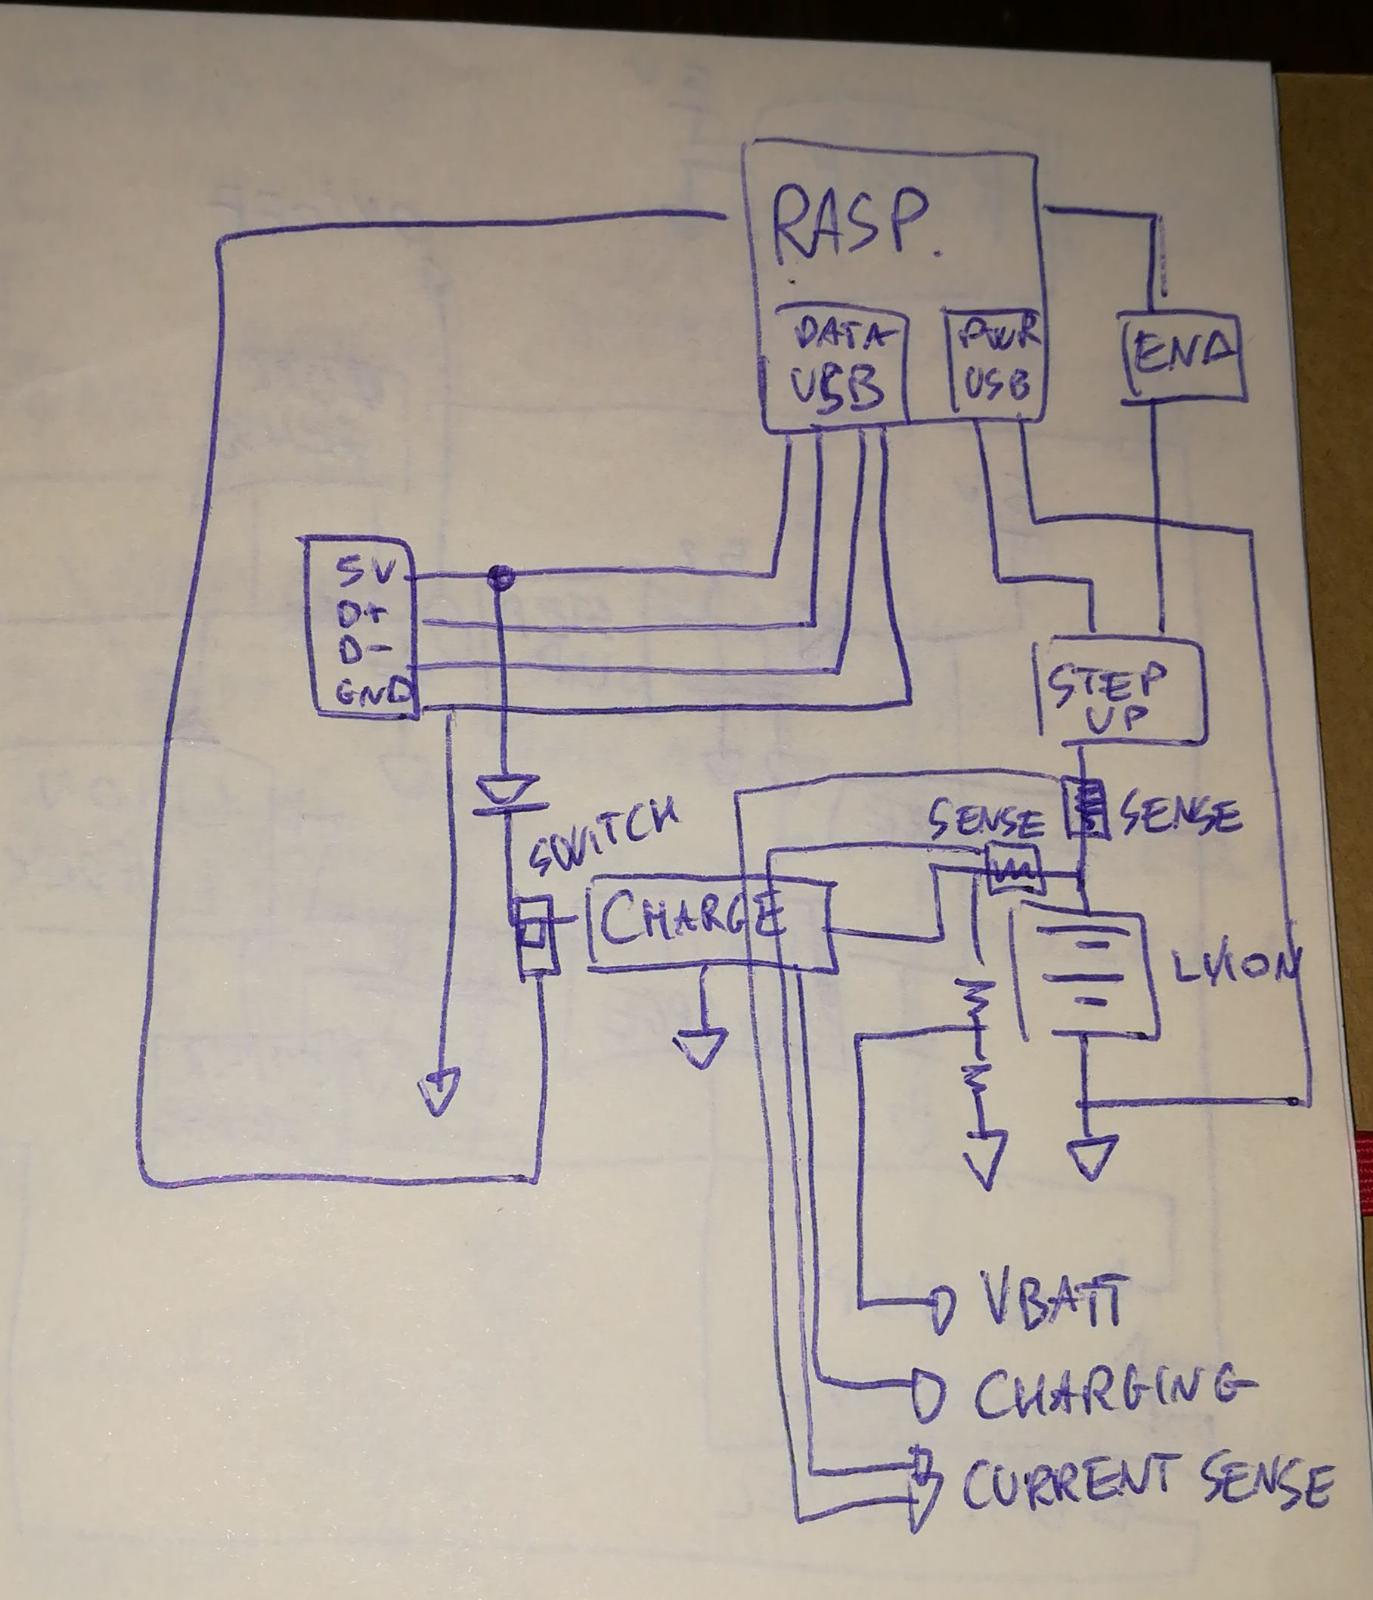 RASP.
DATA
USB
PWR
USB
ENA
5V
D+
D-
GND
STEP
UP
SENSE
SENSE
SWITCH
CHARGE
LIION
VBATT
CHARGING
CURRENT SENSE